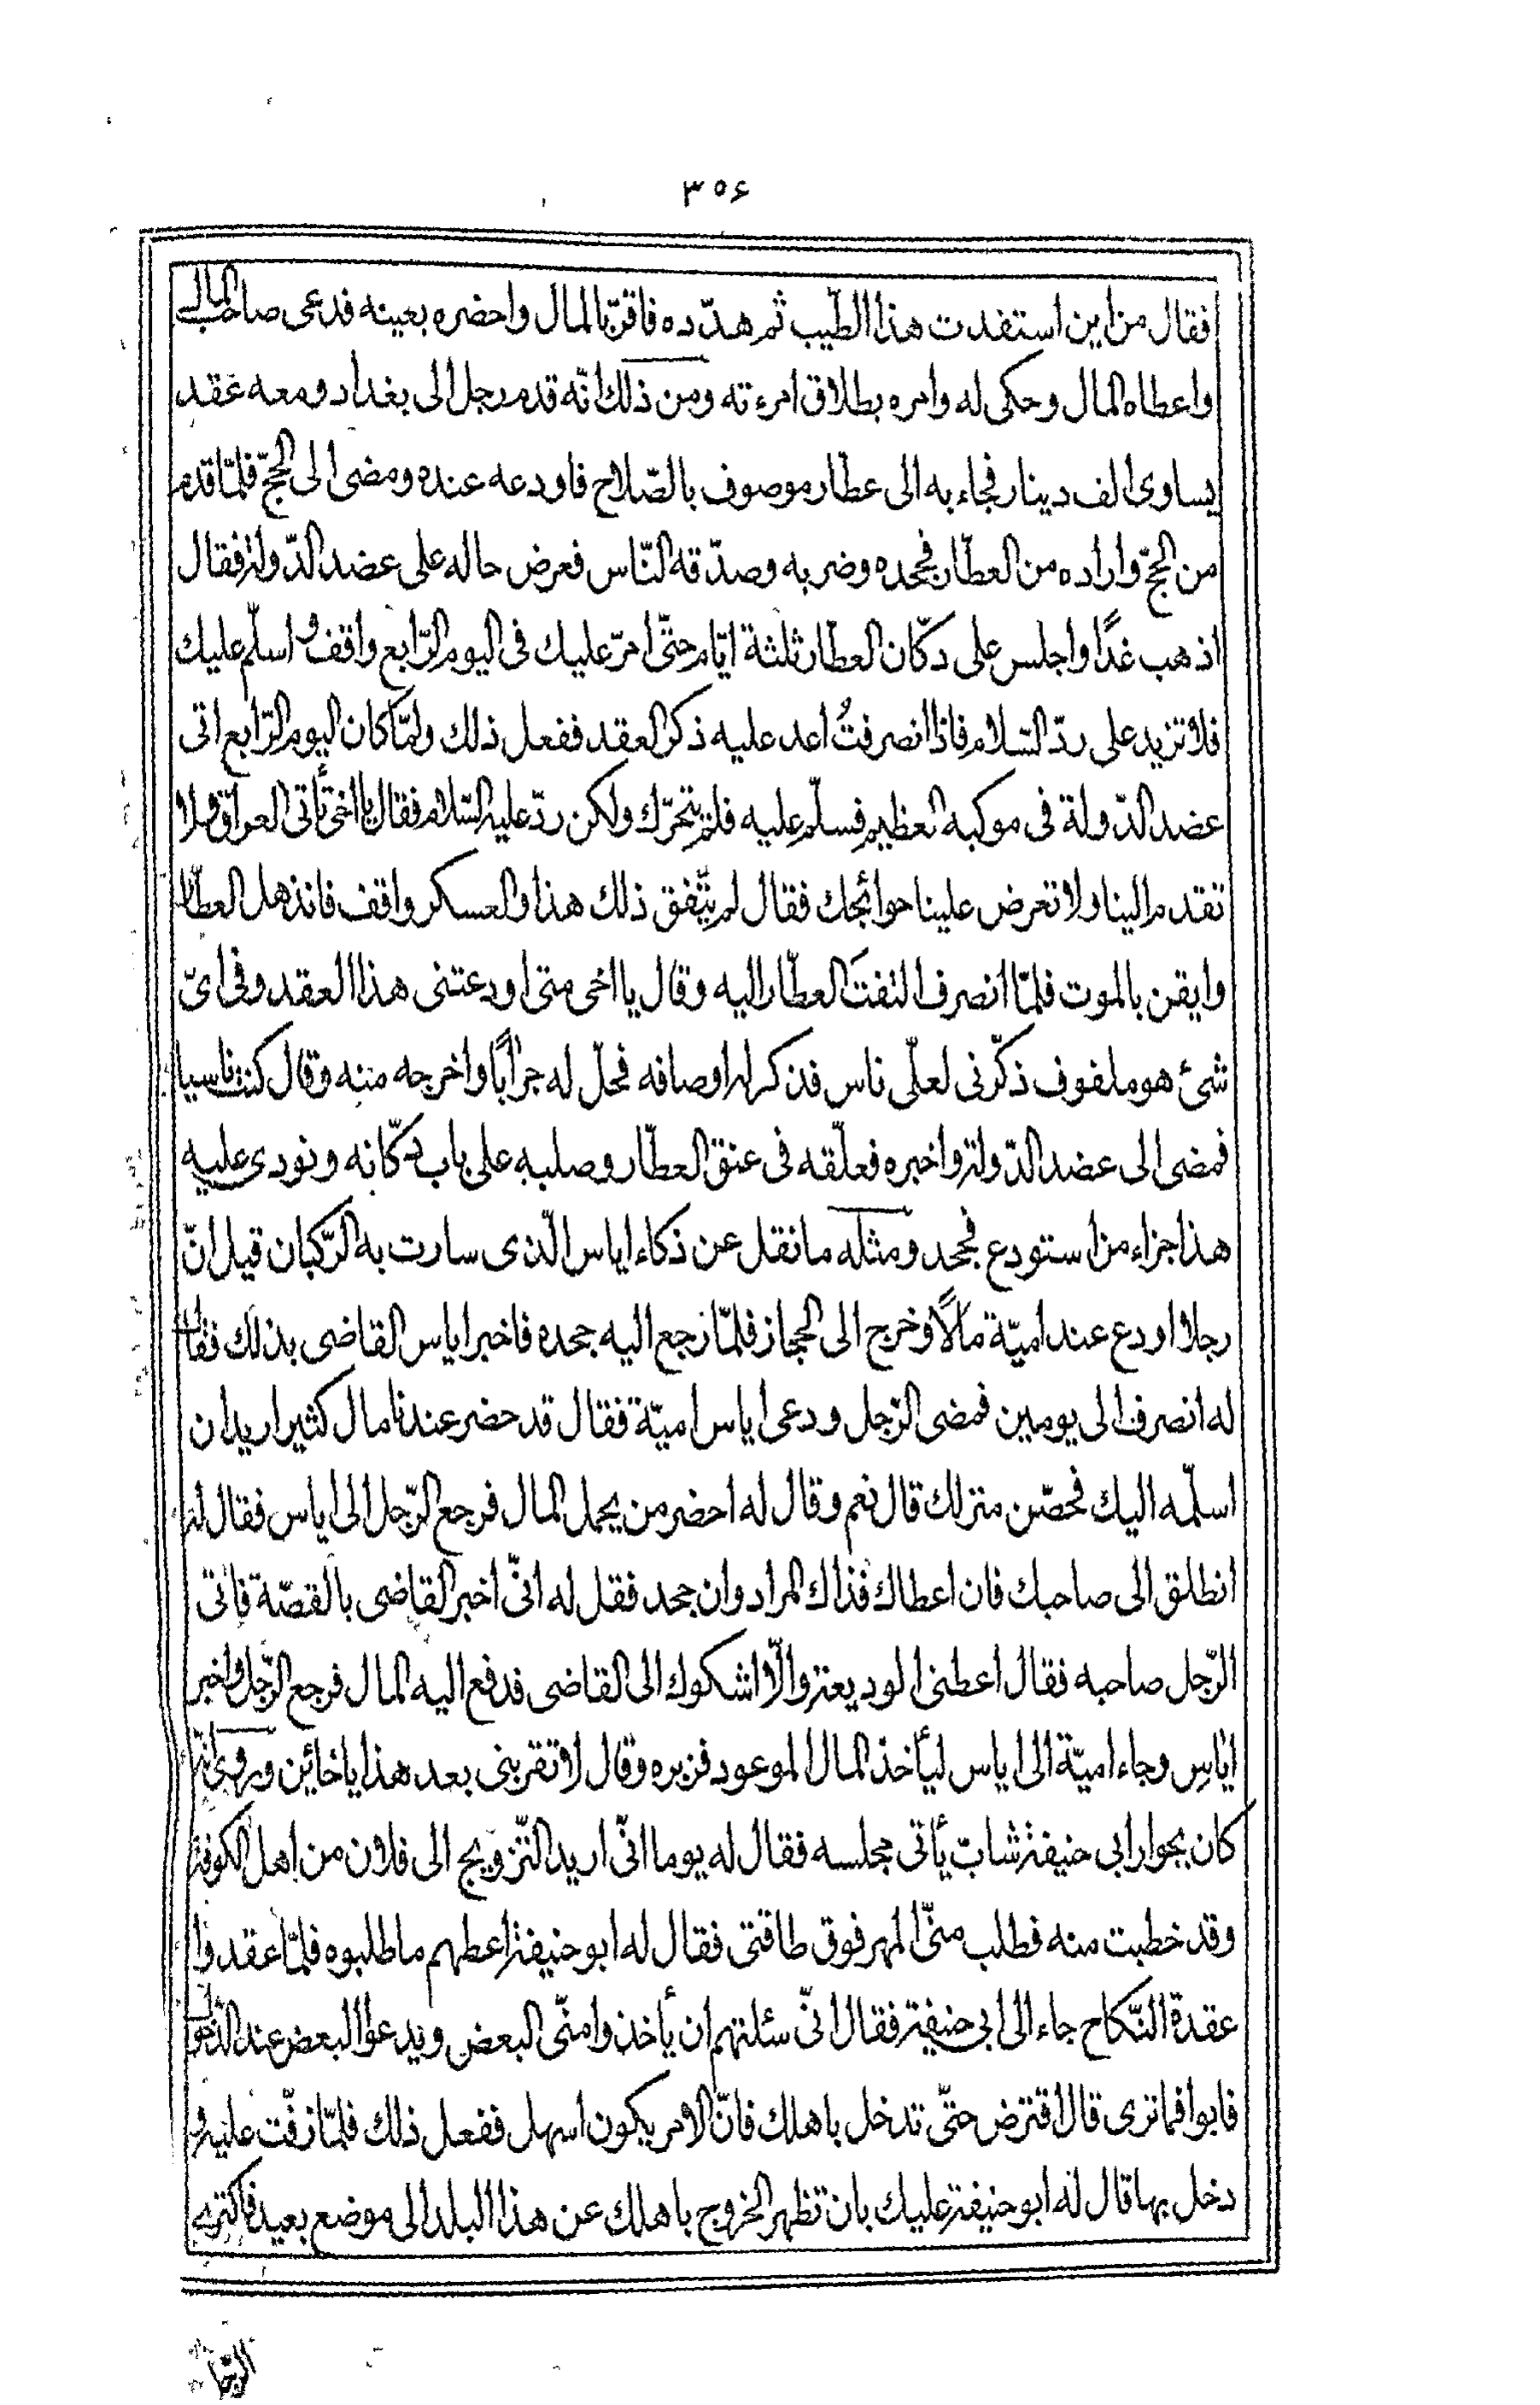 ۳۵۶
فقال من اين استفدت هذا الطّيب ثم هدّده فاقرّ بالمال واحضره بعينه فدعى صاحب المال
واعطاه المال وحكى له وامره بطلاق امرءته ومن ذلك انّه قدم رجل الى بغداد ومعه عقد
يساوى الف دينار فجاء به الى عطّار موصوف بالصّلاح فاودعه عنده ومضى الى الحجّ فلمّا قدم
من الحجّ واراده من العطّار فجحده وضربه وصدّقه النّاس فعرض حاله على عضد الدّولة فقال
اذهب غدًا واجلس على دكّان العطّار ثلثة ايّام حتّى امرّ عليك فى اليوم الرّابع واقف و اسلّم عليك
فلا تزيد على ردّ السّلام فاذا انصرفتُ اعد عليه ذكر العقد ففعل ذلك ولمّا كان اليوم الرّابع اتى
عضد الدّولة فى موكبه العظيم فسلّم عليه فلم يتحرّك ولكن ردّ عليه السّلام فقال يا اخى تأتى العراق ولا
تقدم الينا ولا تعرض علينا حوائجك فقال لم يتّفق ذلك هذا والعسكر واقف فانذهل العطّار
وايقن بالموت فلمّا انصرف التفتَ العطّار اليه وقال يا اخى متى اودعتنى هذا العقد وفى اىّ
شئ هو ملفوف ذكّرنى لعلّى ناس فذكر له اوصافه فحلّ له جرابًا واخرجه منه وقال كنت ناسيا
فمضى الى عضد الدّولة واخبره فعلّقه فى عنق العطّار وصلبه على باب دكّانه ونودى عليه
هذا جزاء من استودع فجحد ومثله ما نقل عن ذكاء اياس الّذى سارت به الرّكبان قيل انّ
رجلا اودع عند اميّة مالًا وخرج الى الحجاز فلمّا رجع اليه جحده فاخبر اياس القاضى بذلك فقال
له انصرف الى يومين فمضى الرّجل ودعى اياس اميّة فقال قد حضر عندنا مال كثير اريد ان
اسلّمه اليك فحصّن منزلك قال نعم وقال له احضر من يحمل المال فرجع الرّجل الى اياس فقال له
انطلق الى صاحبك فان اعطاك فذاك المراد وان جحد فقل له انّى اخبر القاضى بالقصّة فاتى
الرّجل صاحبه فقال اعطنى الوديعة والّا اشكوك الى القاضى فدفع اليه المال فرجع الرّجل واخبر
اياس وجاء اميّة الى اياس ليأخذ المال الموعود فزبره وقال لا تقربنى بعد هذا يا خائين وروى انّه
كان بجوار ابى حنيفة شابّ يأتى مجلسه فقال له يوما انّى اريد التّزويج الى فلان من اهل الكوفة
وقد خطبت منه فطلب منّى المهر فوق طاقتى فقال له ابو حنيفة اعطهم ما طلبوه فلمّا عقدوا
عقدة النّكاح جاء الى ابى حنيفة فقال انّى سئلتهم ان يأخذوا منّى البعض ويدعوا البعض عند الدّخول
فابوا فما ترى قال اقترض حتّى تدخل باهلك فانّ الامر يكون اسهل ففعل ذلك فلمّا زفّت عليه و
دخل بها قال له ابو حنيفة عليك بان تظهر الخروج باهلك عن هذا البلد الى موضع بعيد فاكترى
الرّجل